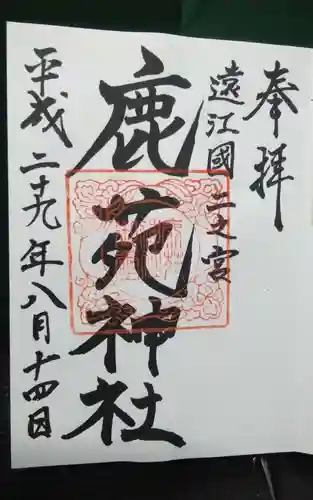 奉拝
遠江國二之宮
鹿苑神社
平成二十九年八月十四日